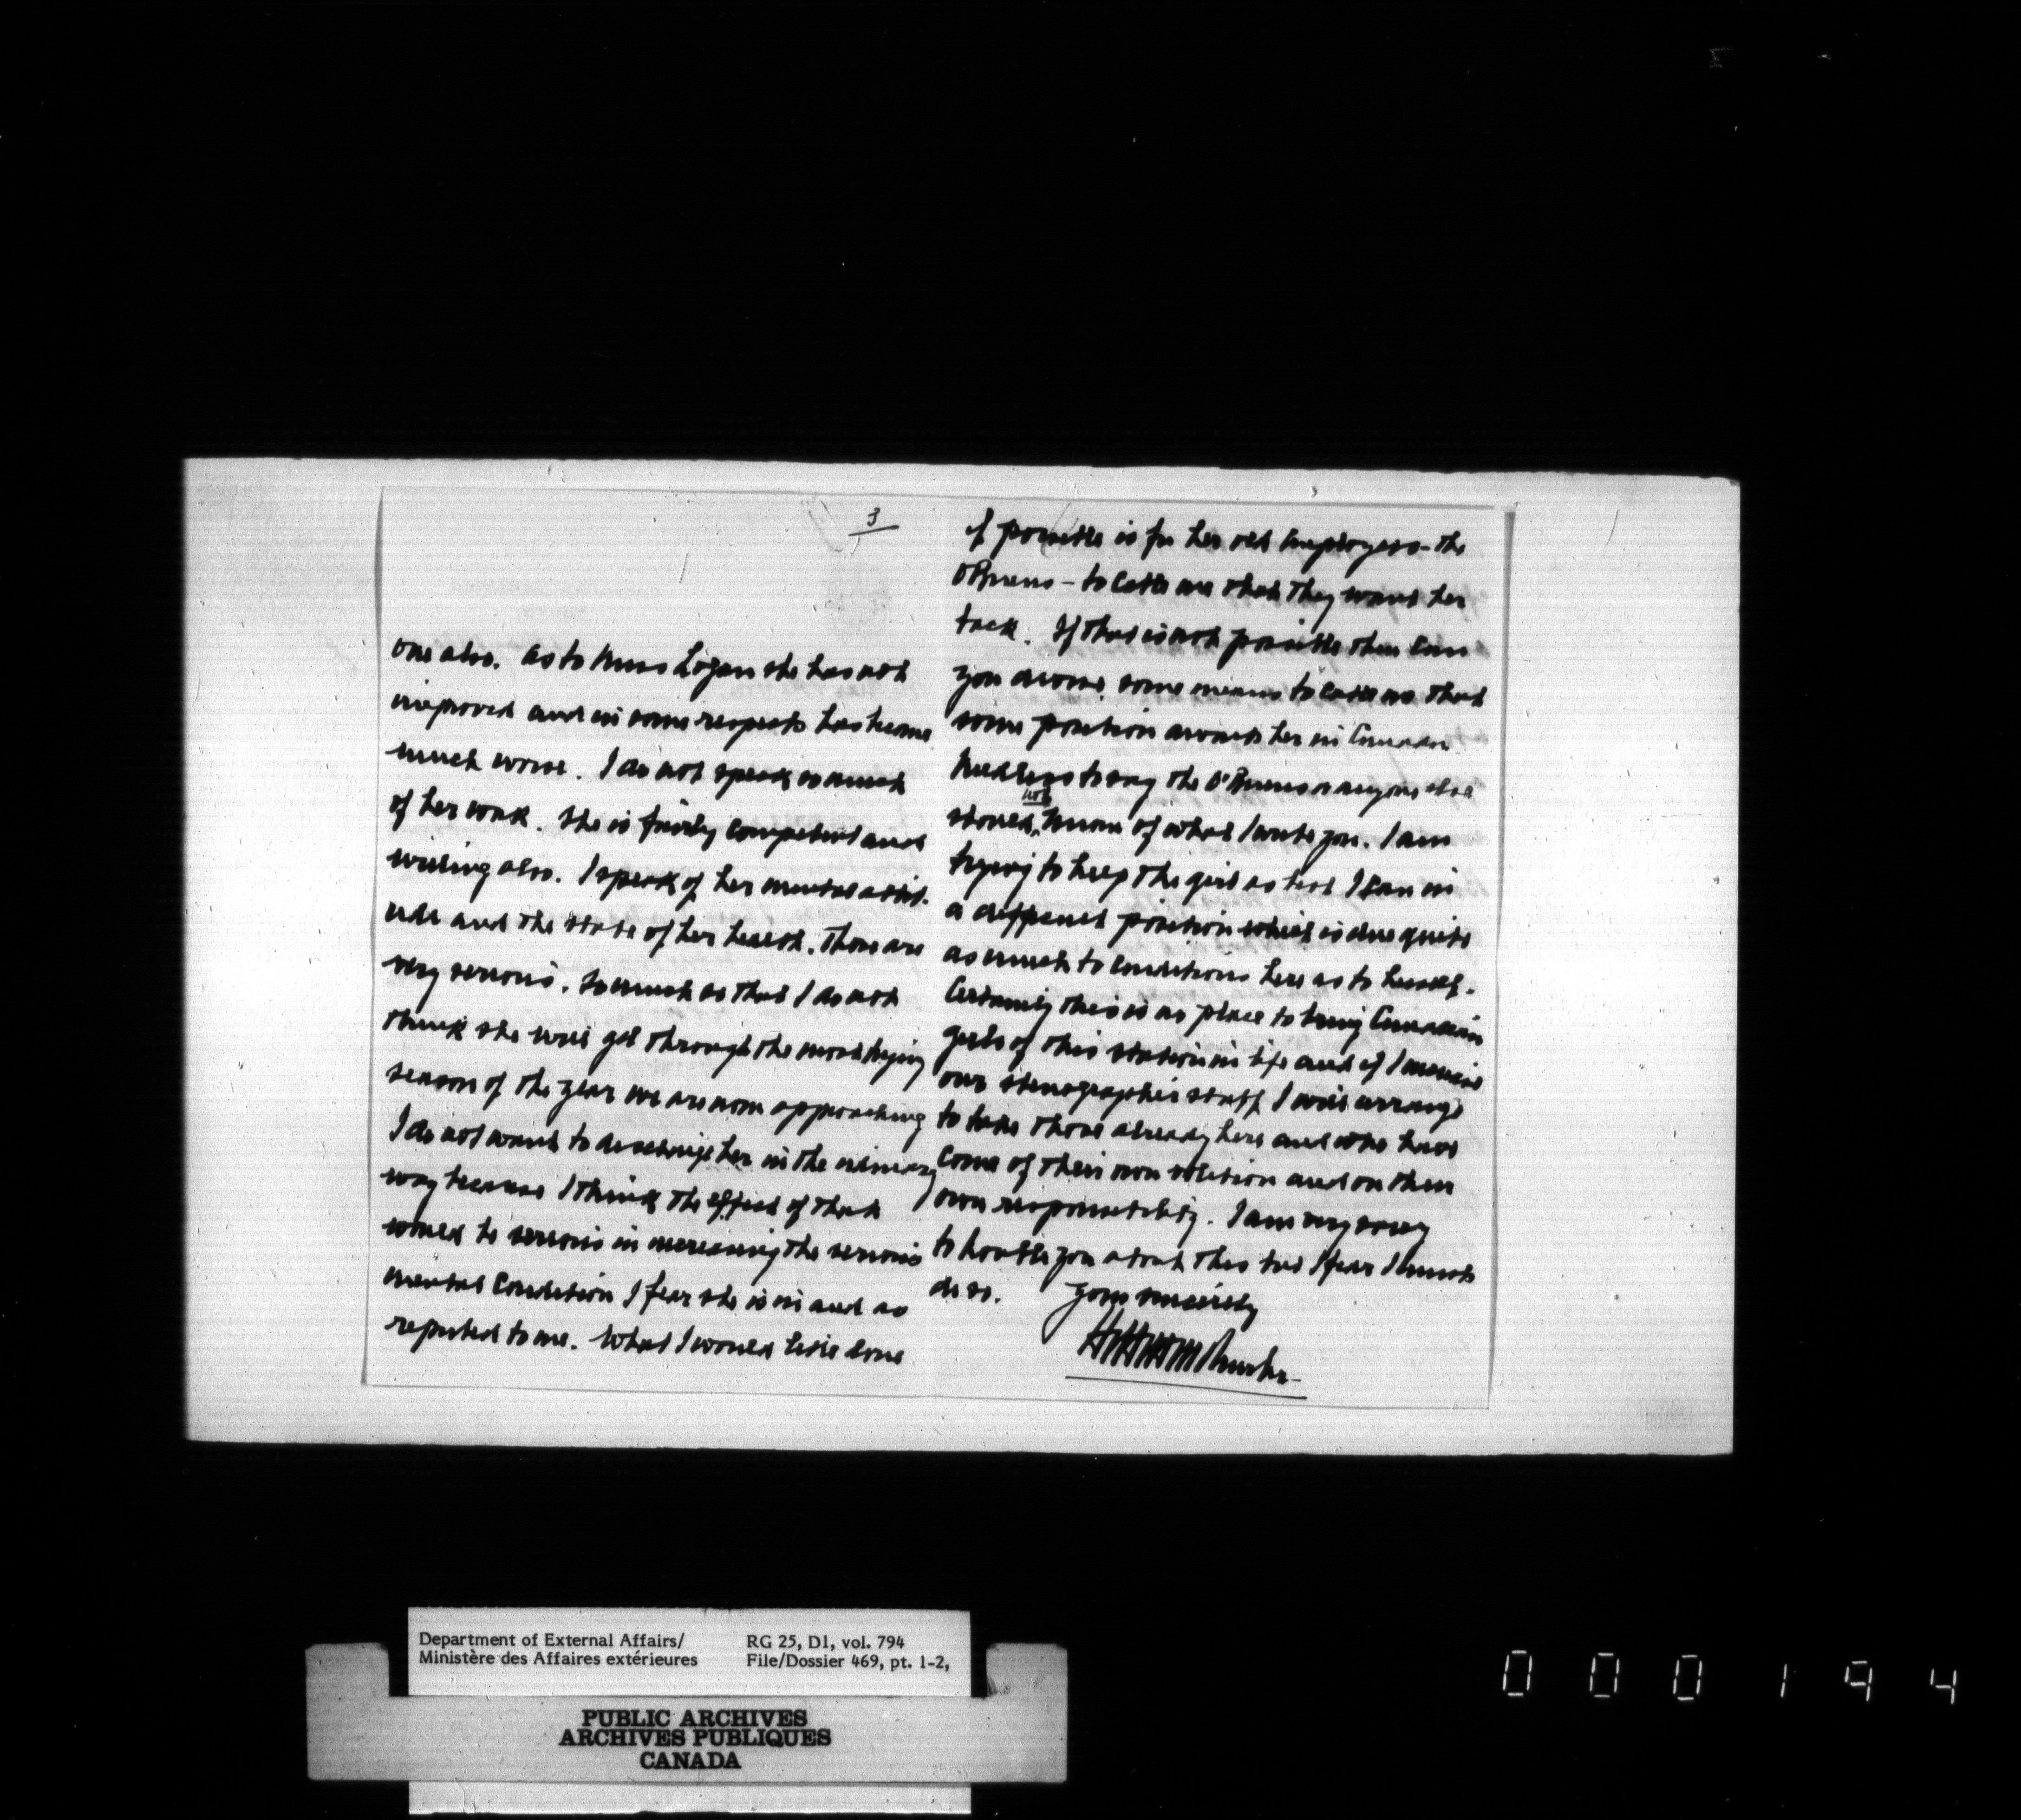 3
one also. As to Miss Logan she has not
improved and in some respects has become
much worse. I do not speak so much
of her work. She is fairly competent and
willing also. I speak of her mental attit-
ude and the state of her health. Those are
very serious. So much so that I do not
think she will get through the most trying
season of the year we are now approaching
I do not want to discharge her in the ordinary
way because I think the effect of that
would be serious in increasing the serious
mental condition I fear she is in and as
reported to me. What I would like done
if possible is for her old employers - the
O'Briens - to cable me that they want her
back. If that is not possible then can
you devise some means to cable me that
some position awaits her in Canada.
Needless to say the O'Briens or anyone else
should not know of what I write you. I am
trying to help the girl as best I can in
a difficult position which is due quite
as much to conditions here as to herself.
Certainly this is no place to bring Canadian
girls of this station in life and if I increase
our stenographic staff I will arrange
to take those already here and who have
come of their own volition and on their
own responsibility. I am very sorry
to trouble you about this but I fear I must
do so. Yours sincerely
Department of External Affairs/
Ministère des Affaires extérieures
RG 25, D1, vol. 794
File/Dossier 469, pt. 1-2,
PUBLIC ARCHIVES
ARCHIVES PUBLIQUES
CANADA
000194